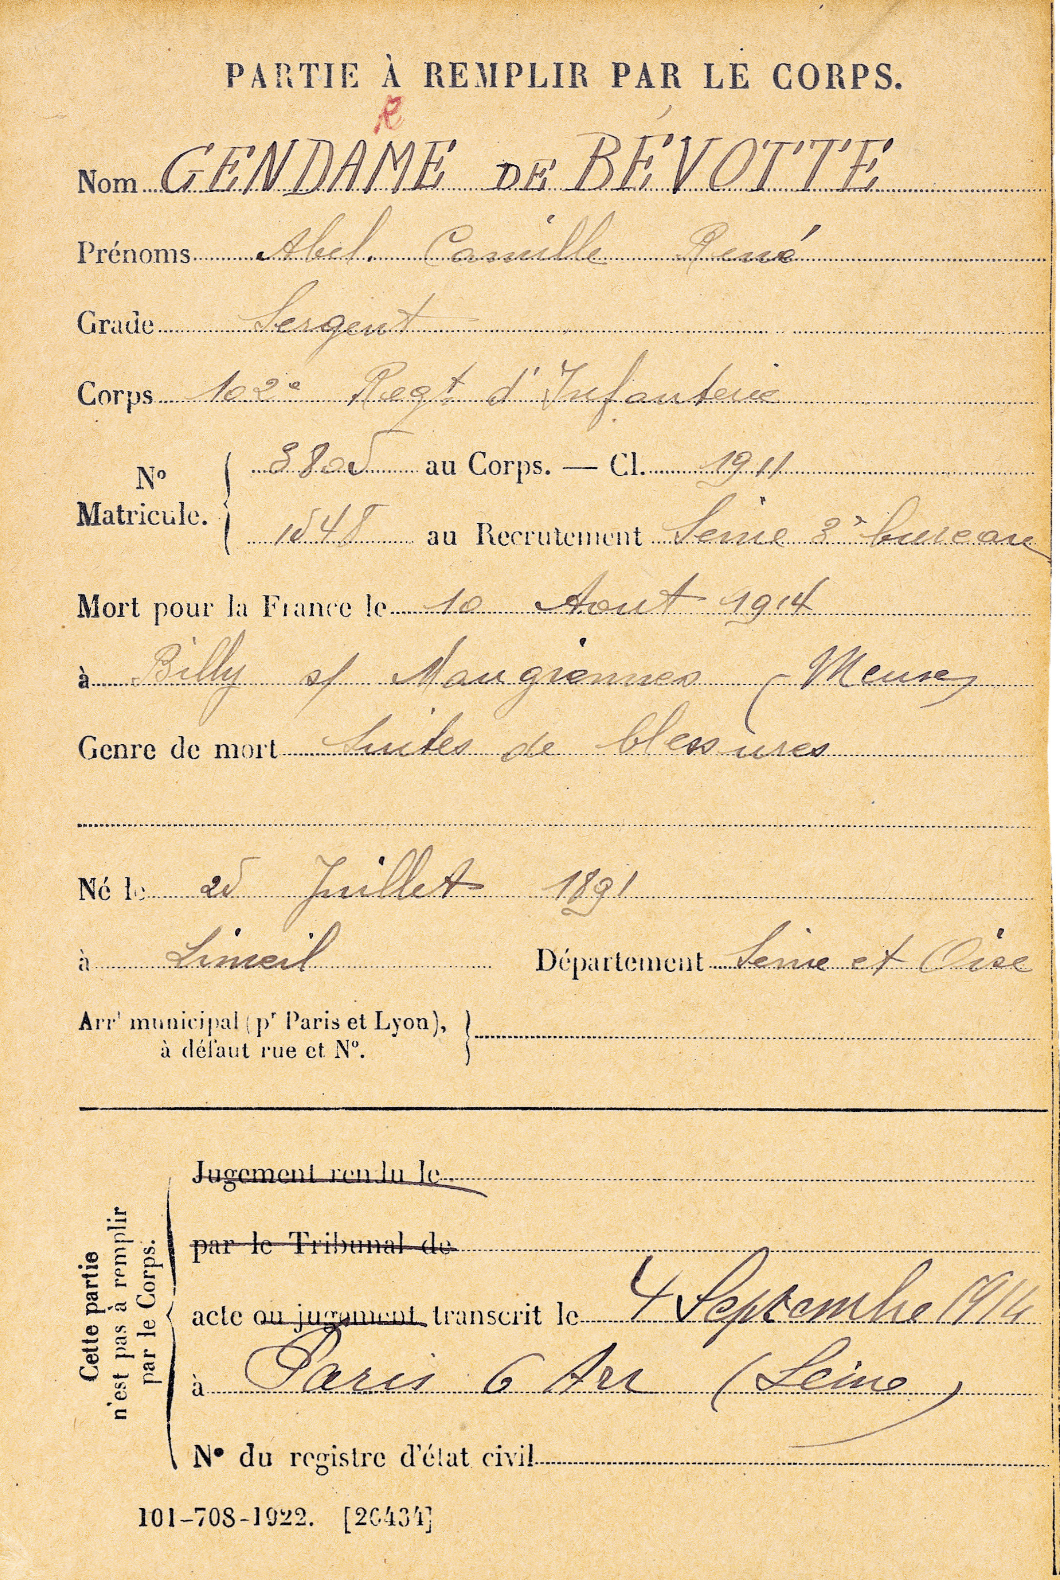 PARTIE À REMPLIR PAR LE CORPS.
R
Nom GENDAME DE BÉVOTTE
Prénoms Abel. Camille René
Grade Sergent
Corps 102e Regt d'Infanterie
No Matricule. 3805 au Corps. — Cl. 1911
1548 au Recrutement Seine 3e bureau
Mort pour la France le 10 Aout 1914
à Billy s/ Maugiennes (Meuse)
Genre de mort Suites de blessures
Né le 25 Juillet 1891
à Limeil Département Seine et Oise
Arrt municipal (pr Paris et Lyon),
à défaut rue et No.
Cette partie
n'est pas à remplir
par le Corps.
Jugement rendu le
par le Tribunal de
acte ou jugement transcrit le 4 Septembre 1914
à Paris 6 Arr (Seine)
No du registre d'état civil
101-708-1922. [26434]